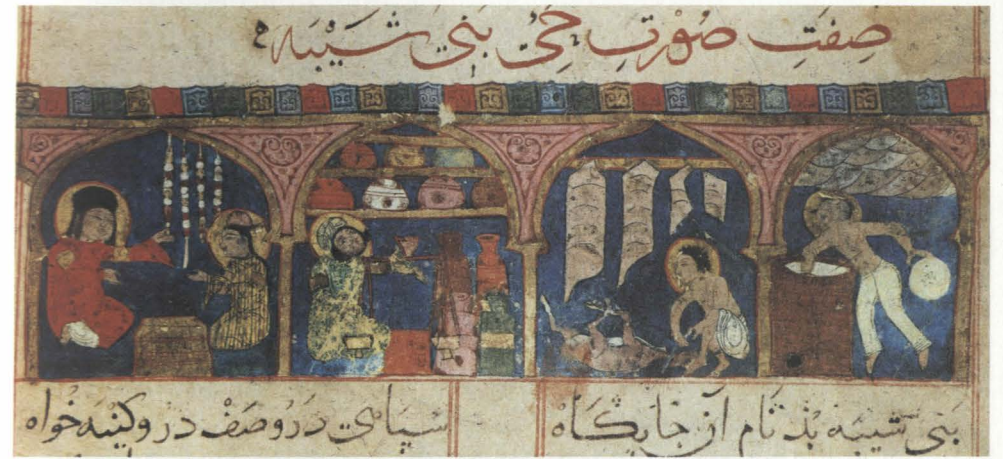 صفت صورت حی بنی شیبه
بنی شیبه بذ نام آن جایکاه سپاهی درو صف در و کینه خواه